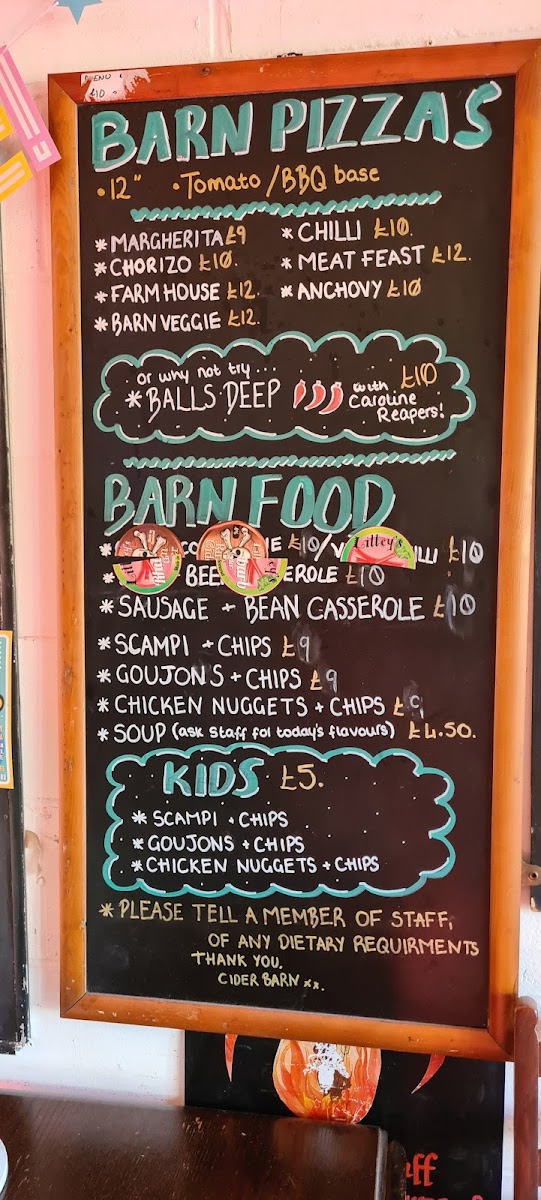 £10
BARN PIZZAS
• 12" • Tomato / BBQ base
* MARGHERITA £9 * CHILLI £10.
* CHORIZO £10. * MEAT FEAST £12.
* FARMHOUSE £12. * ANCHOVY £10
* BARN VEGGIE £12.
or why not try...
* BALLS DEEP with Caroline Reapers! £10
BARN FOOD
£10/ £10
* BEE EROLE £10
* SAUSAGE + BEAN CASSEROLE £10
* SCAMPI + CHIPS £9
* GOUJONS + CHIPS £9
* CHICKEN NUGGETS + CHIPS £9
* SOUP (ask Staff for today's flavours) £4.50.
KIDS £5.
* SCAMPI + CHIPS
* GOUJONS + CHIPS
* CHICKEN NUGGETS + CHIPS
* PLEASE TELL A MEMBER OF STAFF,
OF ANY DIETARY REQUIRMENTS
THANK YOU.
CIDER BARN xx.
Lilley's